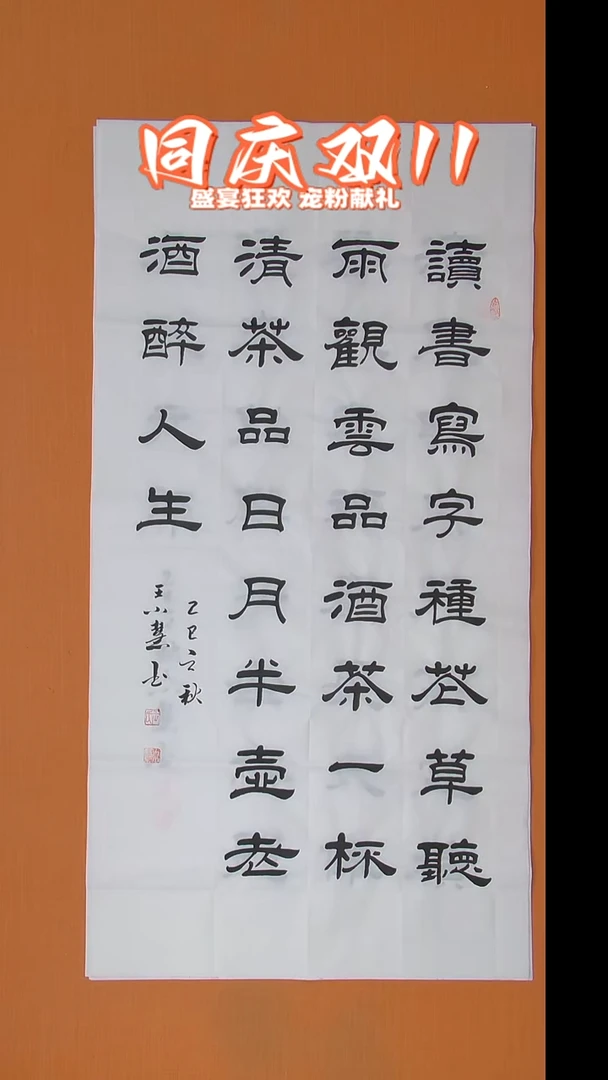 同庆双11
盛宴狂欢 宠粉献礼
讀書寫字種花草聽
雨觀雲品酒茶一杯
清茶品日月半壺老
酒醉人生
乙巳之秋
王小慧书